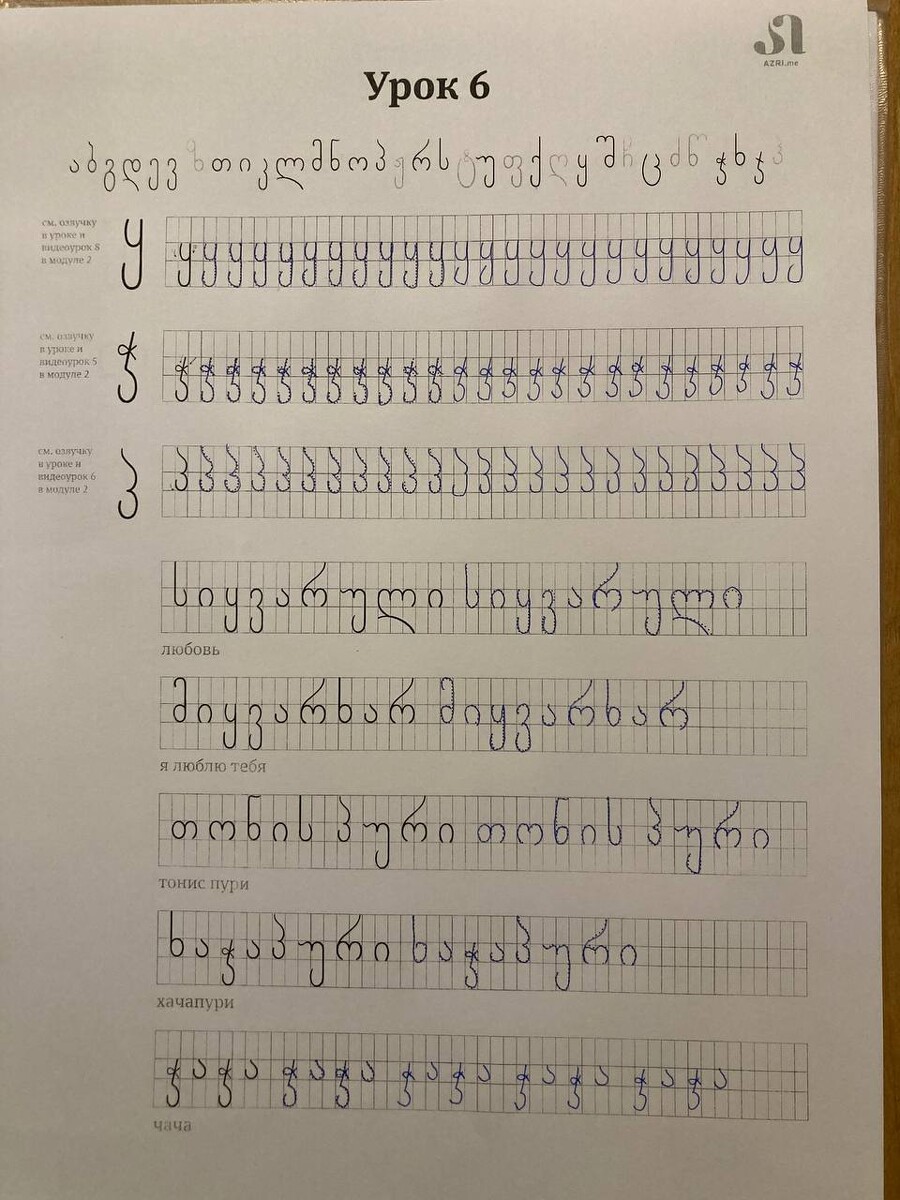 ЯZRI.me
Урок 6
აბგდევზთიკლმნოპჟრსტუფქღყშჩცძწჭხჯჰ
см. озвучку
в уроке и
видеоурок 8
в модуле 2
ყ
ყ ყ ყ ყ ყ ყ ყ ყ ყ ყ ყ ყ ყ ყ ყ ყ ყ ყ ყ ყ ყ ყ ყ ყ ყ
см. озвучку
в уроке и
видеоурок 5
в модуле 2
ჭ
ჭ ჭ ჭ ჭ ჭ ჭ ჭ ჭ ჭ ჭ ჭ ჭ ჭ ჭ ჭ ჭ ჭ ჭ ჭ ჭ ჭ ჭ ჭ ჭ ჭ
см. озвучку
в уроке и
видеоурок 6
в модуле 2
პ
პ პ პ პ პ პ პ პ პ პ პ პ პ პ პ პ პ პ პ პ პ პ პ პ პ
სიყვარული სიყვარული
любовь
მიყვარხარ მიყვარხარ
я люблю тебя
თონის პური თონის პური
тонис пури
ხაჭაპური ხაჭაპური
хачапури
ჭაჭა ჭაჭა ჭაჭა ჭაჭა ჭაჭა
чача